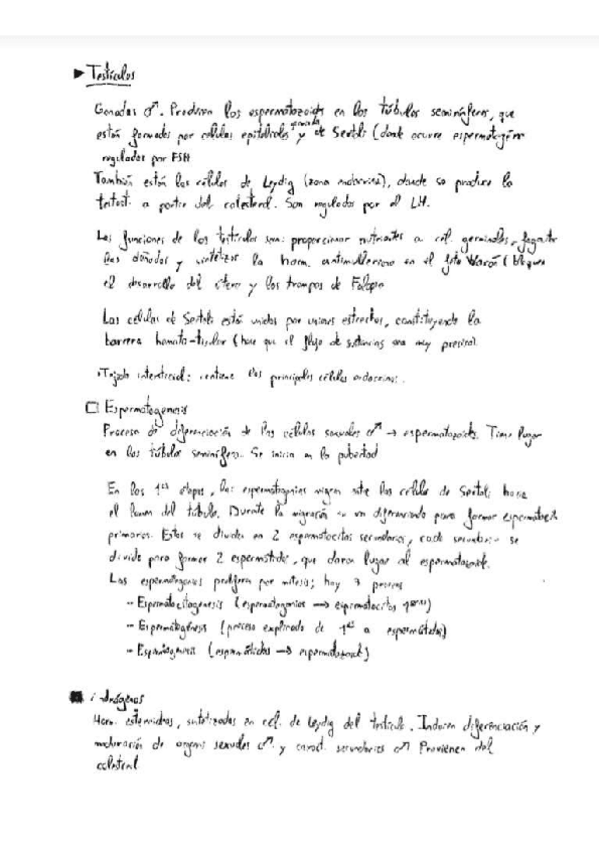 ▶ Testículos
Gonadas ♂. Producen los espermatozoides en los túbulos seminíferos, que
están formados por células epiteliales y de Sertoli (donde ocurre espermatogén
regulados por FSH
También están las células de Leydig (zona endocrina), donde se produce la
testost. a partir del colesterol. Son regulados por el LH.
Las funciones de los testículos son: proporcionar nutrientes a cél. germinales, fagocitar
las dañadas y sintetizar la horm. antimulleriana en el feto varón (bloquea
el desarrollo del útero y las trompas de Falopio
Las células de Sertoli están unidas por uniones estrechas, constituyendo la
barrera hemato-tisular (hace que el flujo de sustancias sea muy preciso).
• Tejido intersticial: contiene las principales células endocrinas.
□ Espermatogenesis
Proceso de diferenciación de las células sexuales ♂ → espermatozoide. Tiene lugar
en los túbulos seminíferos. Se inicia en la pubertad
En las 1as etapas, las espermatogonias migran entre las células de Sertoli hacia
el lumen del túbulo. Durante la migración se van diferenciando para formar espermatocit
primarios. Estos se dividen en 2 espermatocitos secundarios, cada secundario se
divide para formar 2 espermátidas, que daran lugar al espermatozoide.
Las espermatogonias proliferan por mitosis; hay 3 procesos
- Espermatocitogenesis (espermatogonias → espermatocitos 1arios)
- Espermatogénesis (proceso explicado de 1as a espermátidas)
- Espermiogenesis (espermátidas → espermatozoide)
Andrógenos
Horm. esteroideas, sintetizadas en cél. de Leydig del testículo. Inducen diferenciación y
maduración de organos sexuales ♂ y caract. secundarios ♂ Provienen del
colesterol